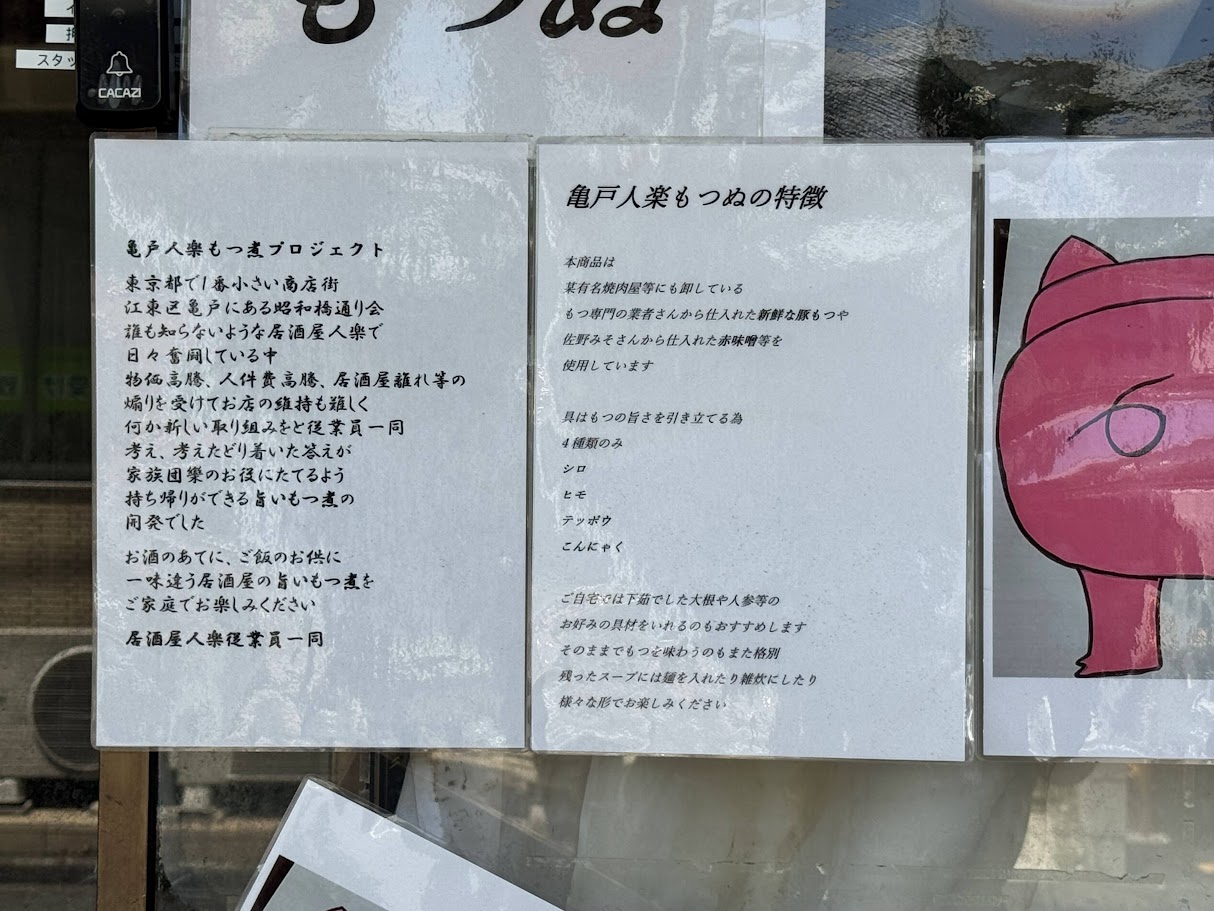 もつぬ
スタッ
CACAZI
亀戸人楽もつ煮プロジェクト
東京都で1番小さい商店街
江東区亀戸にある昭和橋通り会
誰も知らないような居酒屋人楽で
日々奮闘している中
物価高騰、人件費高騰、居酒屋離れ等の
煽りを受けてお店の維持も難しく
何か新しい取り組みをと従業員一同
考え、考えたどり着いた答えが
家族団欒のお役にたてるよう
持ち帰りができる旨いもつ煮の
開発でした
お酒のあてに、ご飯のお供に
一味違う居酒屋の旨いもつ煮を
ご家庭でお楽しみください
居酒屋人楽従業員一同
亀戸人楽もつぬの特徴
本商品は
某有名焼肉屋等にも卸している
もつ専門の業者さんから仕入れた新鮮な豚もつや
佐野みそさんから仕入れた赤味噌等を
使用しています
具はもつの旨さを引き立てる為
4種類のみ
シロ
ヒモ
テッポウ
こんにゃく
ご自宅では下茹でした大根や人参等の
お好みの具材をいれるのもおすすめします
そのままでもつを味わうのもまた格別
残ったスープには麺を入れたり雑炊にしたり
様々な形でお楽しみください